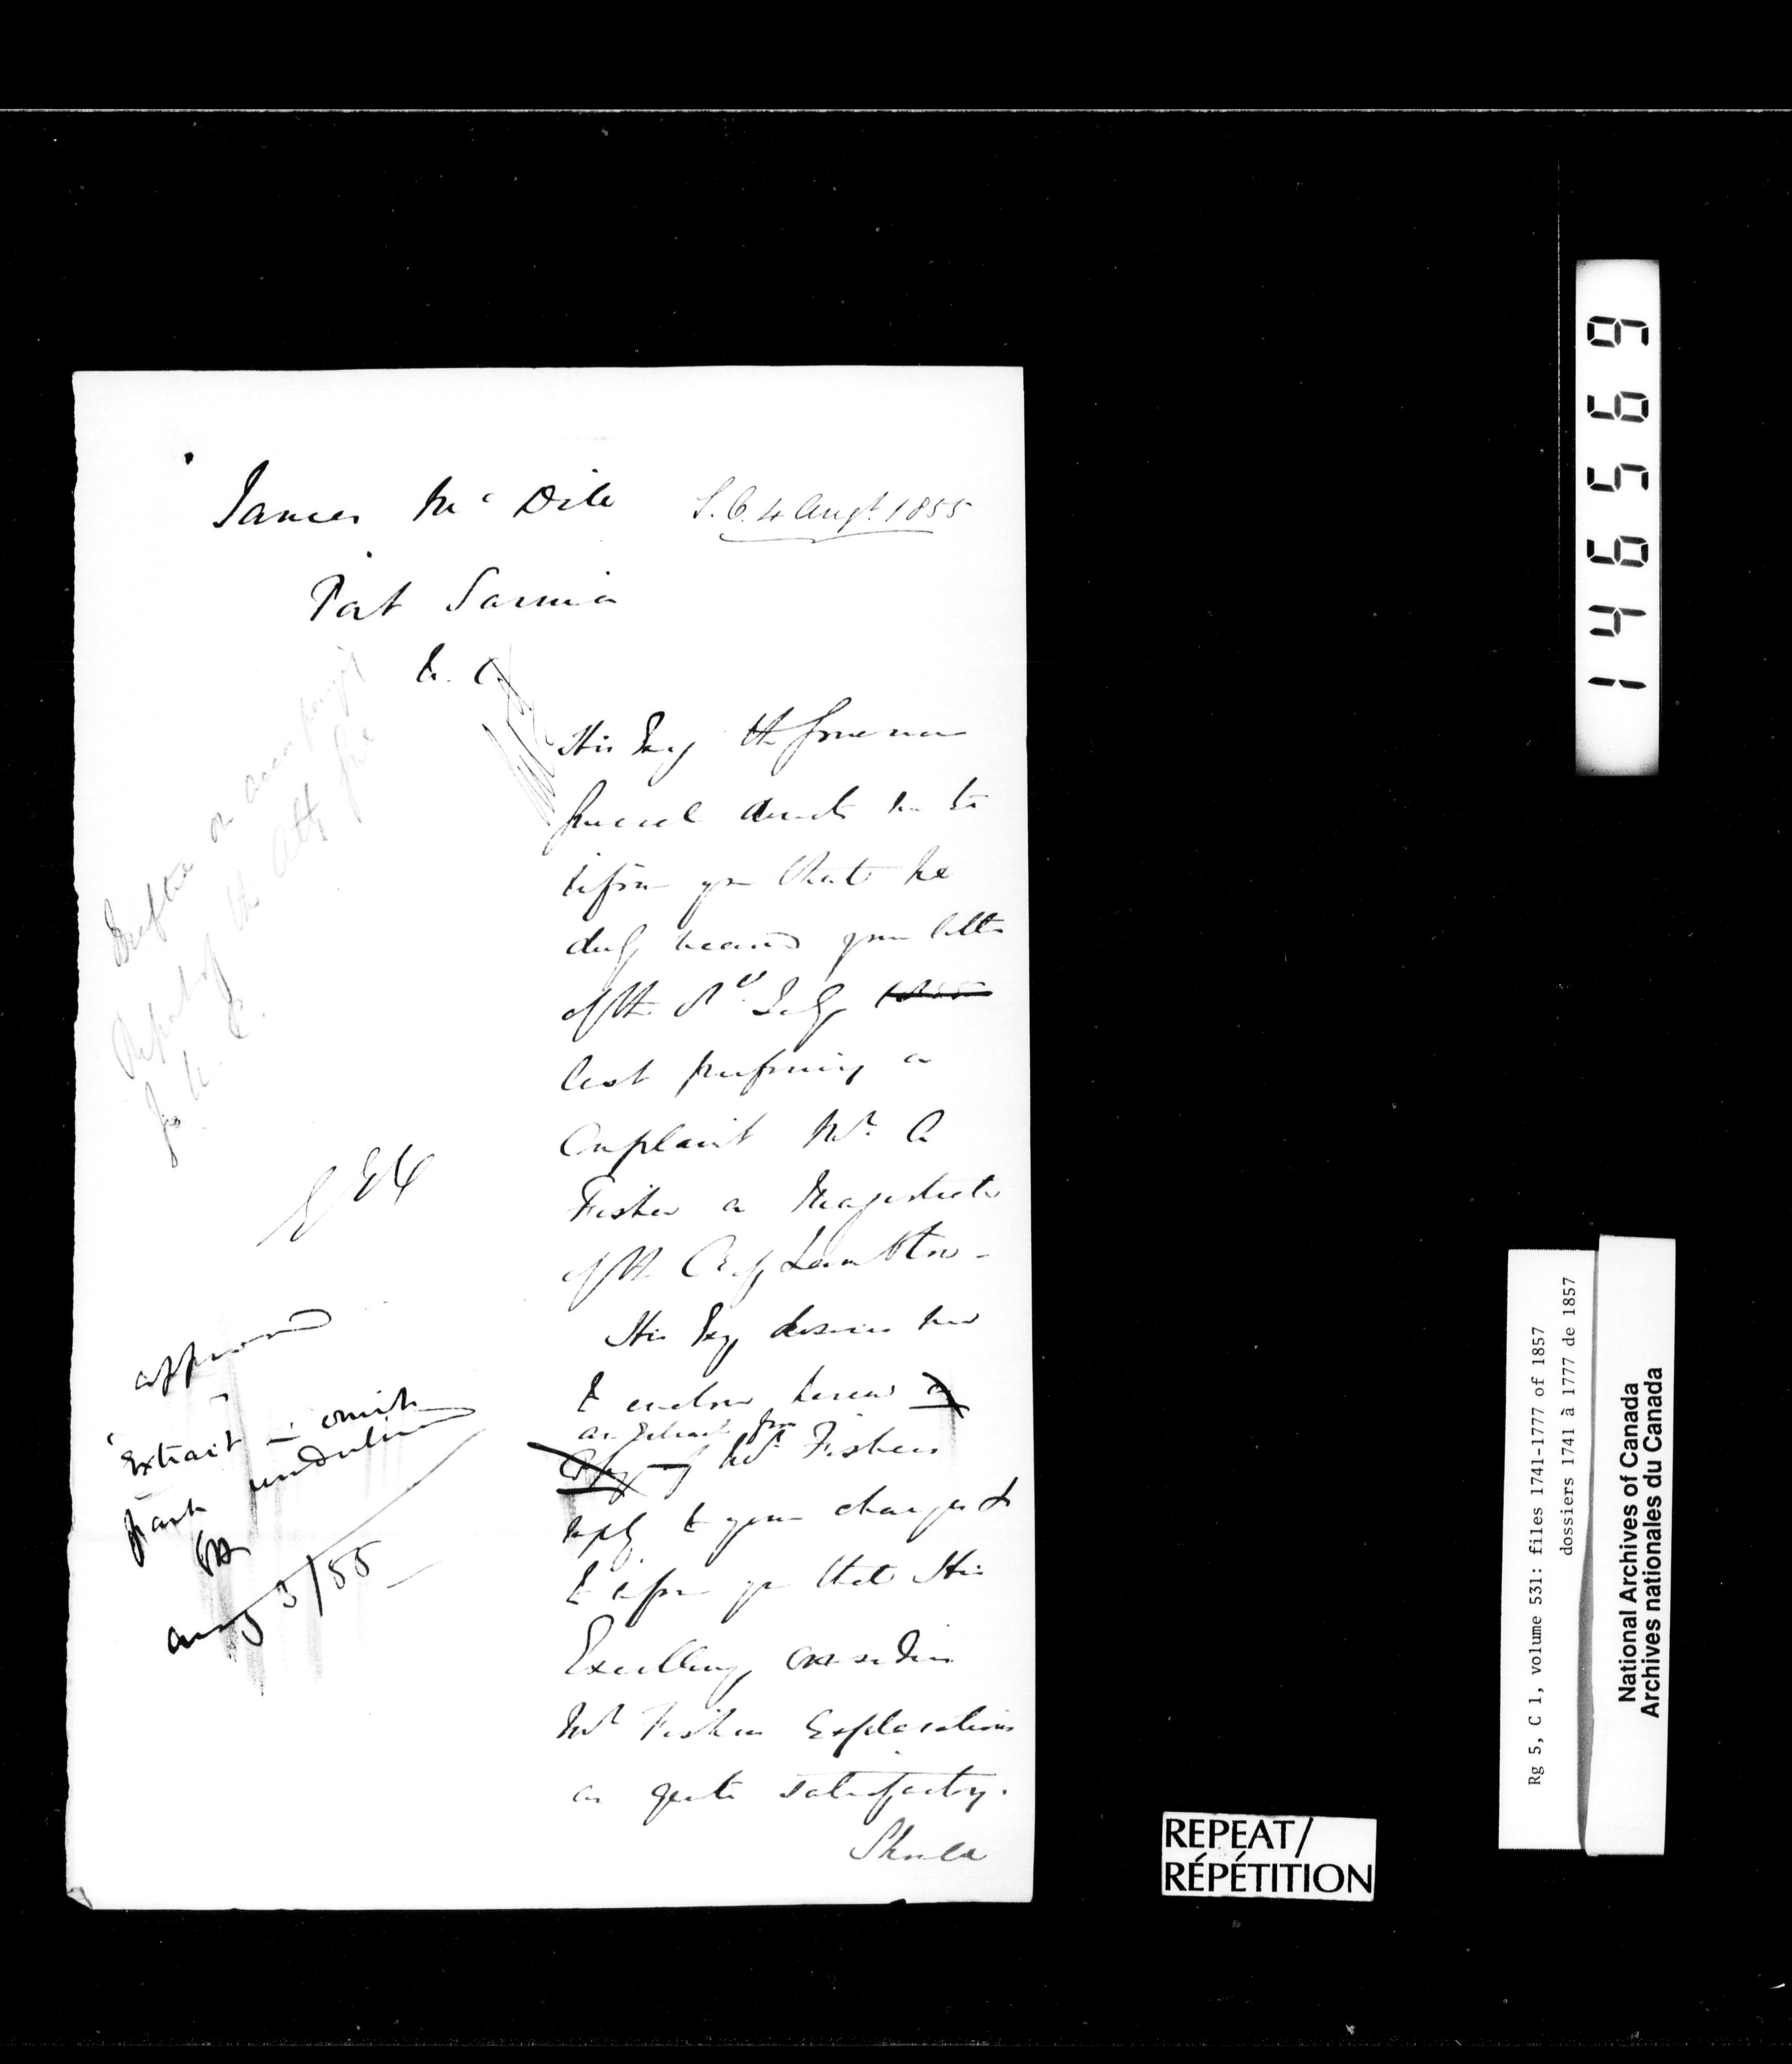 James McDile
S.O. 4 Augt. 1855
Port Sarnia
U. C.
His Exy the Governor
General directs me to
inform you that he
duly received your letter
of the July 1855
last preferring a
Complaint Mr. A
Fisher a Magistrate
of the Co of Lambton -
His Exy desires me
to enclose herein a
an Extract from
Copy of Mr. Fishers
reply to your charges &
to inform you that His
Excellency considers
Mr Fishers Explanations
as quite satisfactory.
Draftee on accompanyg
Report of the Atty Gnl
for U. C.
approved
Extract - omit
part underlined
EH
Aug 3/55
146569
Rg 5, C 1, volume 531: files 1741-1777 of 1857
dossiers 1741 à 1777 de 1857
National Archives of Canada
Archives nationales du Canada
REPEAT/
RÉPÉTITION